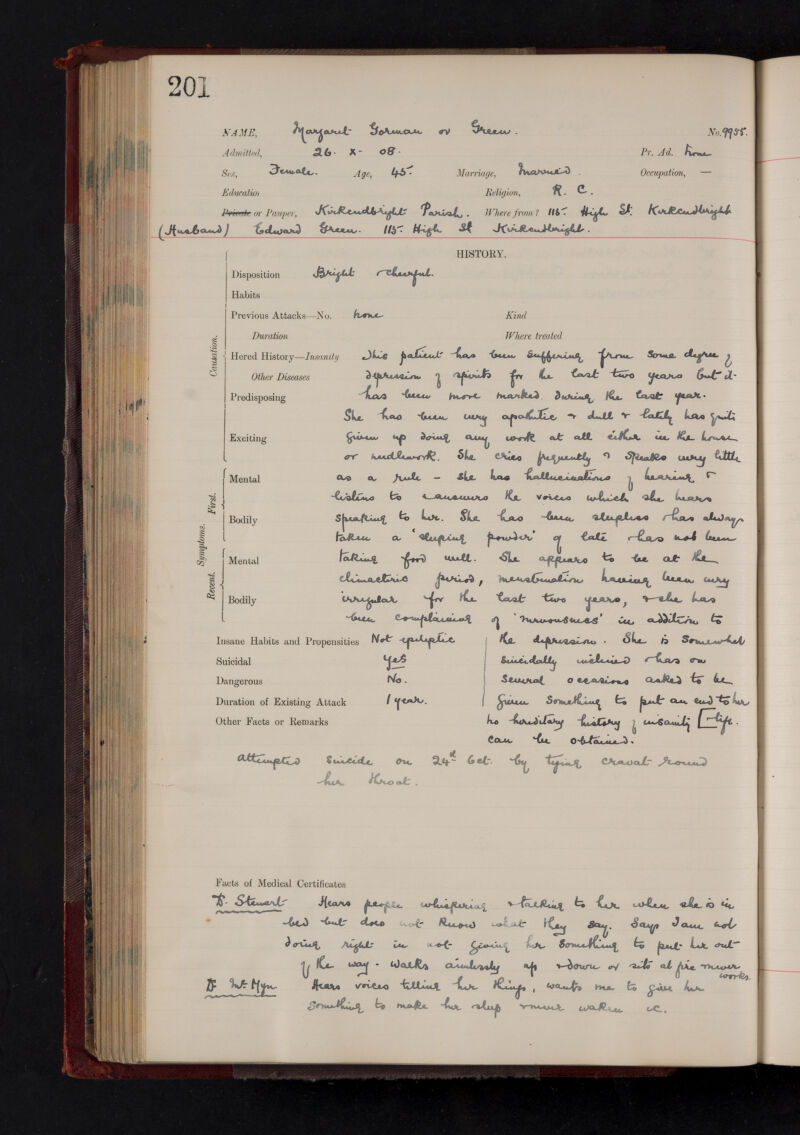 201
NAME, Margaret Gorman or Green. No. 9955.
Admitted, 26. X. 08. Pr. Ad. none
Sex, Female. Age, 45. Marriage, Married. Occupation, —
Education Religion, R. C.
Private or Pauper, Kirkcudbright Parish. Where from? 115 High St. Kirkcudbright
(Husband) Edward Green. 115 High St Kirkcudbright.
HISTORY.
Disposition Bright & cheerful.
Habits
Previous Attacks—No. none Kind
Duration Where treated
Causation.
Hered History—Insanity This patient has been suffering from some degree of
Other Diseases depression of spirits for the last two years but it
Predisposing has been more marked during the last year.
She has been very apathetic & dull & lately has quite
Exciting given up doing any work at all either in the house
or needlework. She cries frequently & speaks very little
Symptoms.
First.
Mental as a rule – she has hallucinations of hearing &
listens to & answers the voices which she hears
Bodily speaking to her. She has been sleepless & has always
taken a 'sleeping powder' of late & has not been
Recent.
Mental taking food well. She appears to be at the
climacteric period, menstruation having been very
Bodily irregular for the last two years, & she has
been complaining of 'nervousness' in addition to
Insane Habits and Propensities Not epileptic the depression. She is somewhat
Suicidal Yes suicidally inclined & has on
Dangerous No. several occasions asked to be
Duration of Existing Attack 1 year. given something to put an end to her
Other Facts or Remarks no hereditary history of insanity [life.
can be obtained.
Attempted suicide on 24th Oct. by tying cravat round
her throat.
Facts of Medical Certificates
Dr. Stewart Hears people whispering & talking to her when she is in
bed but does not know what they say. Says I am not
doing right in not giving her something to put her out
of the way. Walks aimlessly up & down or sits at fire & never
works.
Dr Hears voices telling her things, wants me to give her
something to make her sleep & never waken &c.